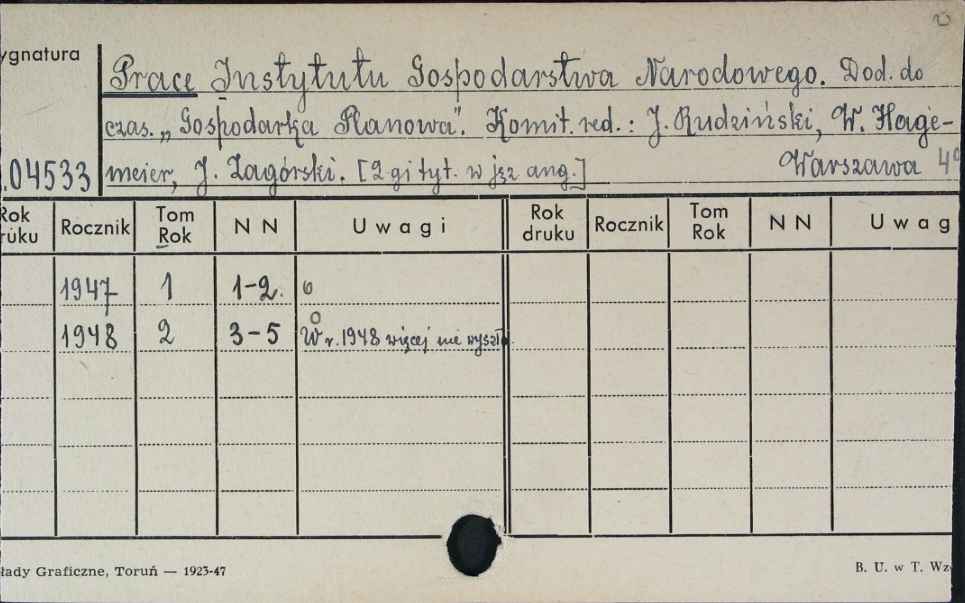 ygnatura
Prace Instytutu Gospodarstwa Narodowego. Dod. do
czas. „Gospodarka Planowa". Komit. red.: J. Rudziński, W. Hage-
.04533 meier, J. Zagórski. [2-gi tyt. w jęz ang.] Warszawa 4°
Rok druku Rocznik Tom Rok N N Uwagi Rok druku Rocznik Tom Rok N N Uwag
1947 1 1-2. o
1948 2 3-5 W r. 1948 więcej nie wyszło
łady Graficzne, Toruń — 1923-47 B. U. w T. Wz